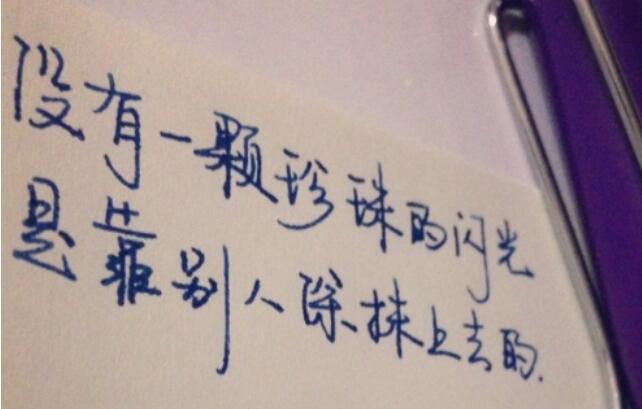 没有一颗珍珠的闪光
是靠别人涂抹上去的.